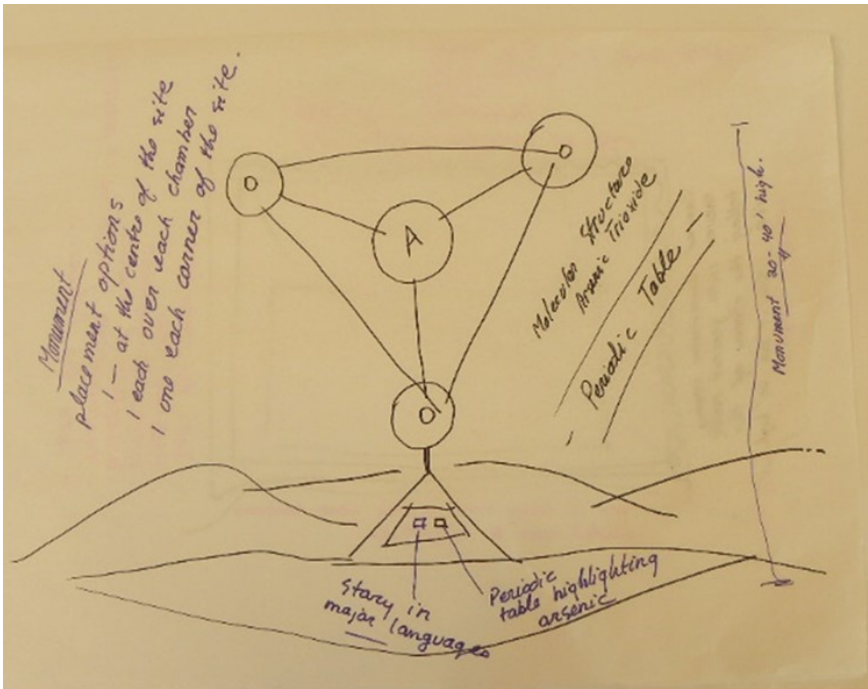 Monument
placement options
1 — at the centre of the site
1 each over each chamber
1 one each corner of the site.
O
O
A
O
Molecular Structure
Arsenic Trioxide
- Periodic Table -
Monument 30-40' high.
Story in
major languages
Periodic
table highlighting
arsenic